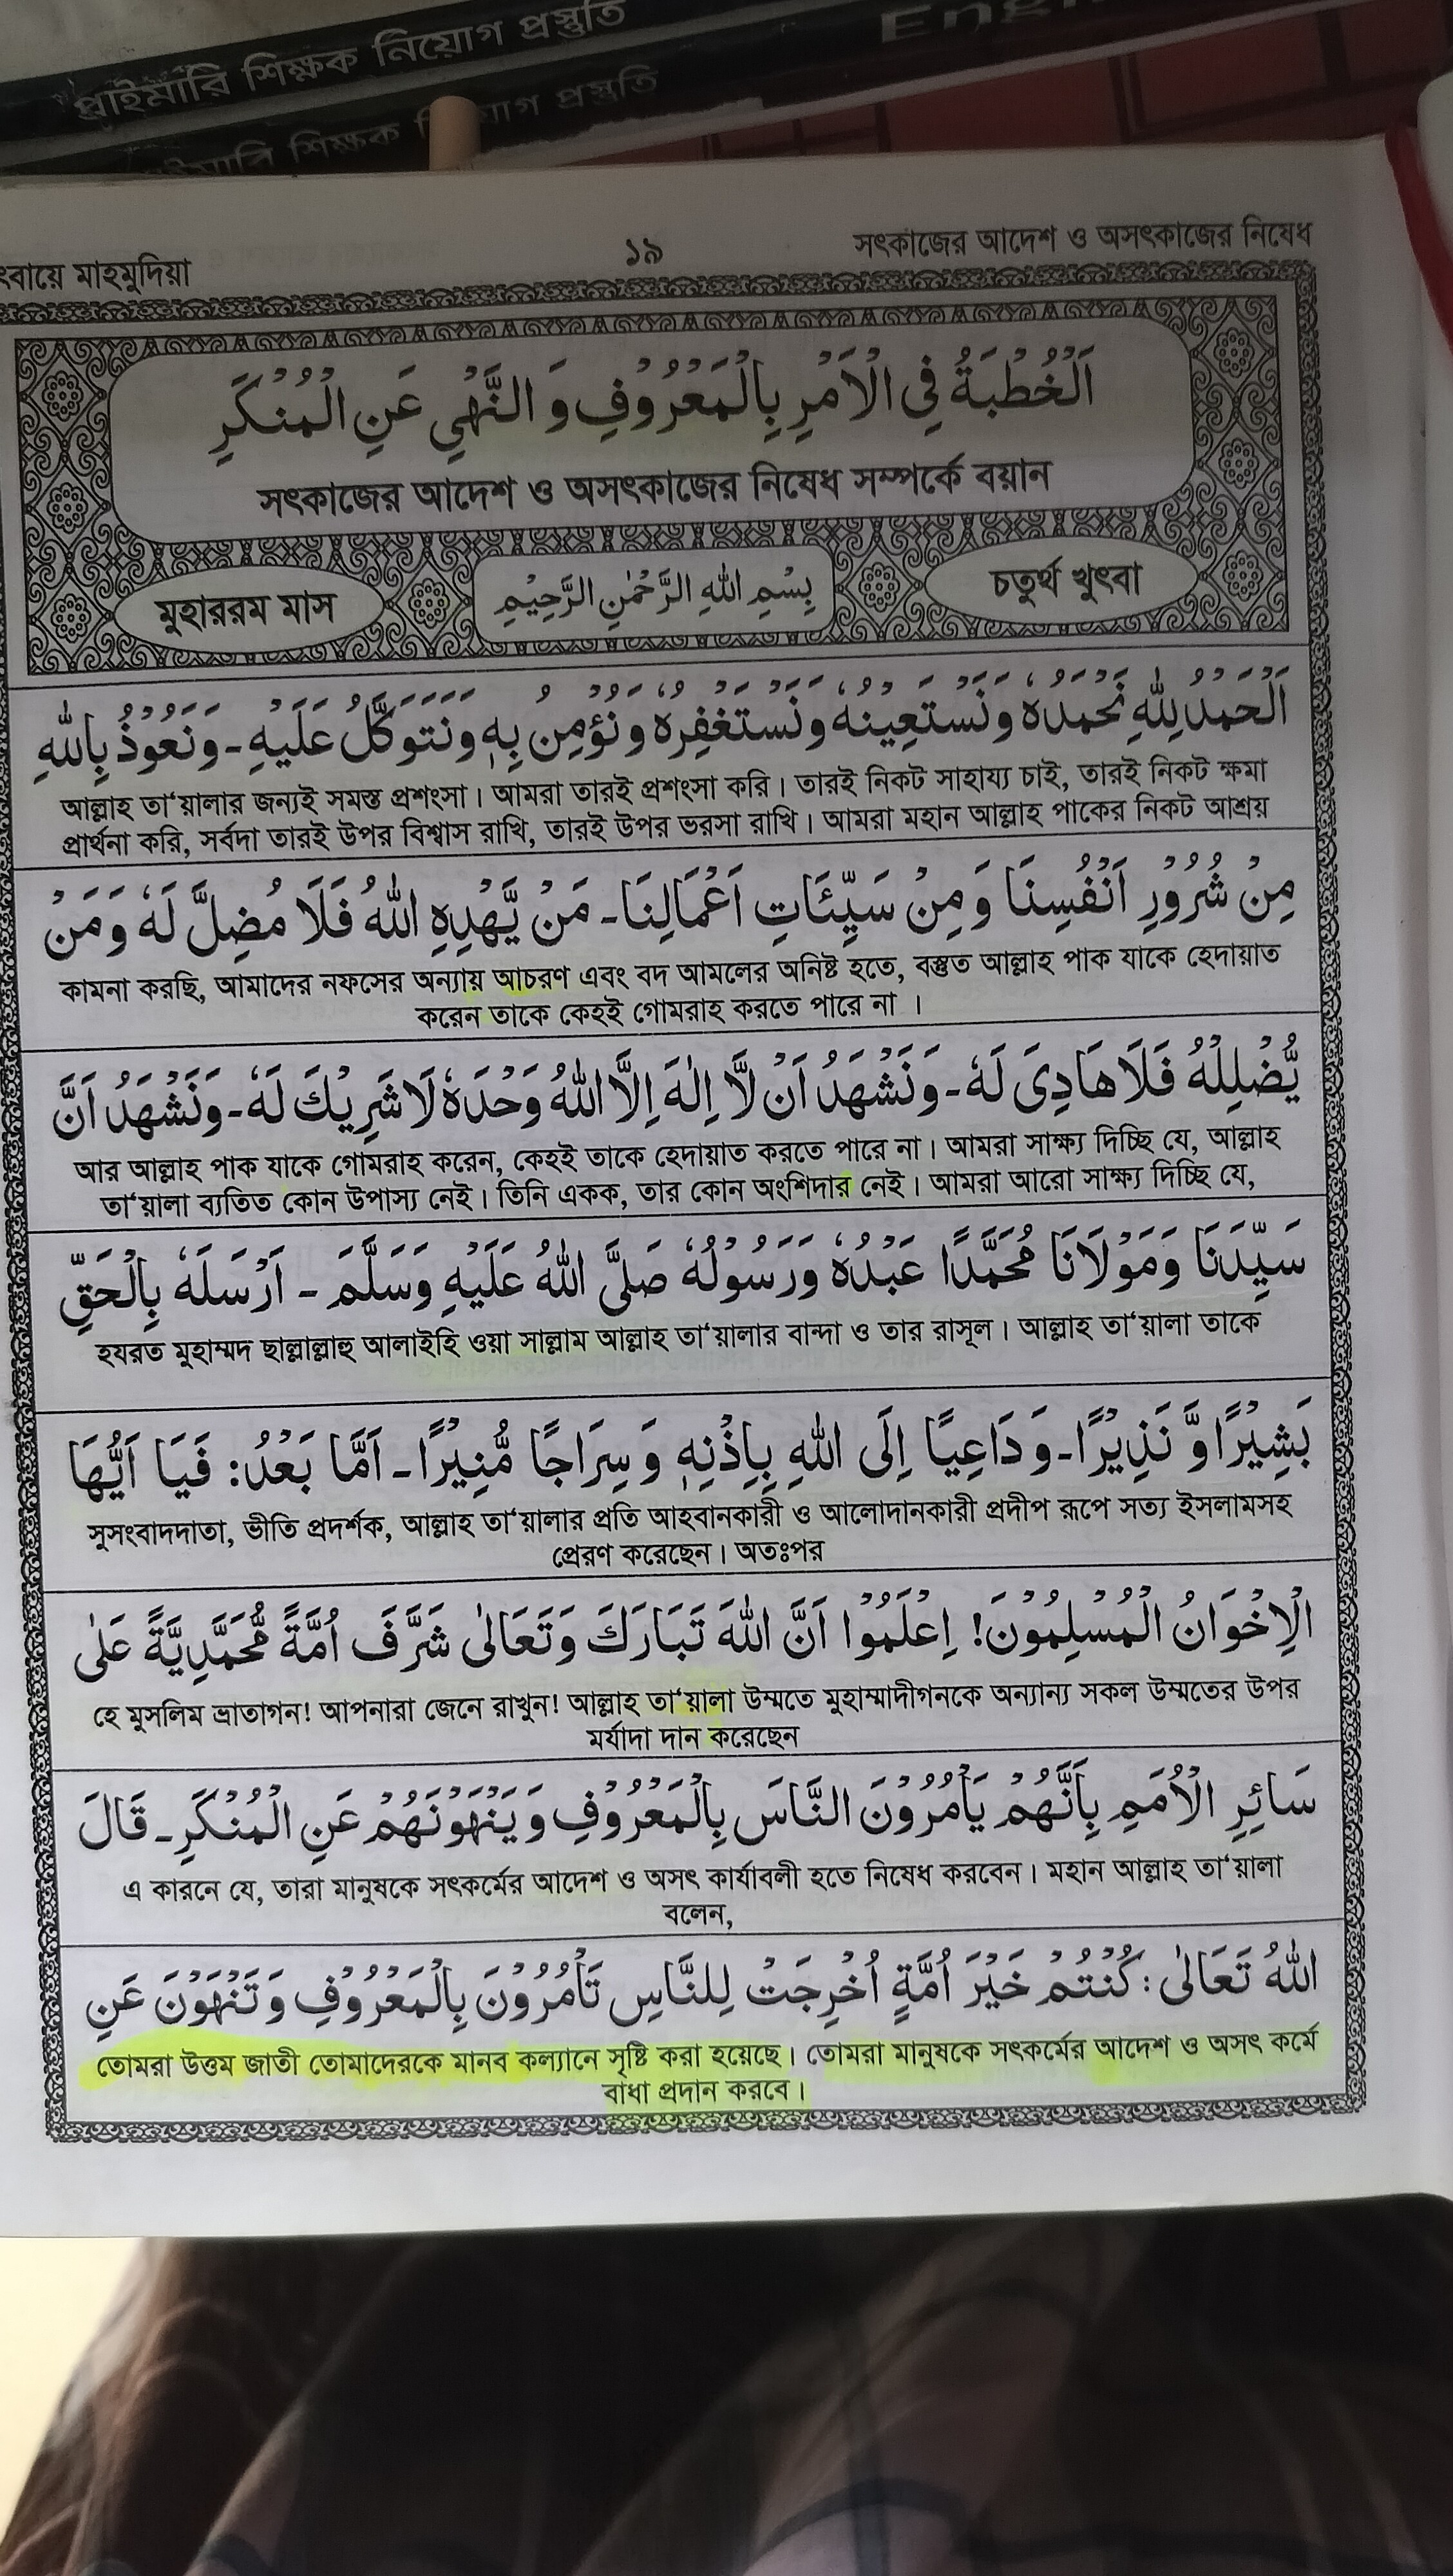 প্রাইমারি শিক্ষক নিয়োগ প্রস্তুতি
শিক্ষক প্রস্তুতি
সৎকাজের আদেশ ও অসৎকাজের নিষেধ
১৯
মাহমুদিয়া
اَلْخُطْبَةُ فِى الْاَمْرِ بِالْمَعْرُوْفِ وَ النَّهْىِ عَنِ الْمُنْكَرِ
সৎকাজের আদেশ ও অসৎকাজের নিষেধ সম্পর্কে বয়ান
চতুর্থ খুৎবা
بِسْمِ اللهِ الرَّحْمٰنِ الرَّحِيْمِ
মুহাররম মাস
اَلْحَمْدُ لِلّٰهِ نَحْمَدُهٗ وَنَسْتَعِيْنُهٗ وَنَسْتَغْفِرُهٗ وَنُؤْمِنُ بِهٖ وَنَتَوَكَّلُ عَلَيْهِ ـ وَنَعُوْذُ بِاللهِ
আল্লাহ তা‘য়ালার জন্যই সমস্ত প্রশংসা। আমরা তারই প্রশংসা করি। তারই নিকট সাহায্য চাই, তারই নিকট ক্ষমা
প্রার্থনা করি, সর্বদা তারই উপর বিশ্বাস রাখি, তারই উপর ভরসা রাখি। আমরা মহান আল্লাহ পাকের নিকট আশ্রয়
مِنْ شُرُوْرِ اَنْفُسِنَا وَ مِنْ سَيِّئَاتِ اَعْمَالِنَا ـ مَنْ يَّهْدِهِ اللهُ فَلَا مُضِلَّ لَهٗ وَمَنْ
কামনা করছি, আমাদের নফসের অন্যায় আচরণ এবং বদ আমলের অনিষ্ট হতে, বস্তুত আল্লাহ পাক যাকে হেদায়াত
করেন তাকে কেহই গোমরাহ করতে পারে না ।
يُّضْلِلْهُ فَلَا هَادِىَ لَهٗ ـ وَنَشْهَدُ اَنْ لَّا اِلٰهَ اِلَّا اللهُ وَحْدَهٗ لَا شَرِيْكَ لَهٗ ـ وَنَشْهَدُ اَنَّ
আর আল্লাহ পাক যাকে গোমরাহ করেন, কেহই তাকে হেদায়াত করতে পারে না। আমরা সাক্ষ্য দিচ্ছি যে, আল্লাহ
তা‘য়ালা ব্যতিত কোন উপাস্য নেই। তিনি একক, তার কোন অংশিদার নেই। আমরা আরো সাক্ষ্য দিচ্ছি যে,
سَيِّدَنَا وَمَوْلَانَا مُحَمَّدًا عَبْدُهٗ وَرَسُوْلُهٗ صَلَّى اللهُ عَلَيْهِ وَسَلَّمَ ـ اَرْسَلَهٗ بِالْحَقِّ
হযরত মুহাম্মদ ছাল্লাল্লাহু আলাইহি ওয়া সাল্লাম আল্লাহ তা‘য়ালার বান্দা ও তার রাসূল। আল্লাহ তা‘য়ালা তাকে
بَشِيْرًا وَّ نَذِيْرًا ـ وَ دَاعِيًا اِلَى اللهِ بِاِذْنِهٖ وَ سِرَاجًا مُّنِيْرًا ـ اَمَّا بَعْدُ: فَيَا اَيُّهَا
সুসংবাদদাতা, ভীতি প্রদর্শক, আল্লাহ তা‘য়ালার প্রতি আহবানকারী ও আলোদানকারী প্রদীপ রূপে সত্য ইসলামসহ
প্রেরণ করেছেন। অতঃপর
الْاِخْوَانُ الْمُسْلِمُوْنَ! اِعْلَمُوْا اَنَّ اللهَ تَبَارَكَ وَتَعَالٰى شَرَّفَ اُمَّةً مُّحَمَّدِيَّةً عَلٰى
হে মুসলিম ভ্রাতাগন! আপনারা জেনে রাখুন! আল্লাহ তা‘য়ালা উম্মতে মুহাম্মাদীগনকে অন্যান্য সকল উম্মতের উপর
মর্যাদা দান করেছেন
سَائِرِ الْاُمَمِ بِاَنَّهُمْ يَاْمُرُوْنَ النَّاسَ بِالْمَعْرُوْفِ وَ يَنْهَوْنَهُمْ عَنِ الْمُنْكَرِ ـ قَالَ
এ কারনে যে, তারা মানুষকে সৎকর্মের আদেশ ও অসৎ কার্যাবলী হতে নিষেধ করবেন। মহান আল্লাহ তা‘য়ালা
বলেন,
اللهُ تَعَالٰى: كُنْتُمْ خَيْرَ اُمَّةٍ اُخْرِجَتْ لِلنَّاسِ تَاْمُرُوْنَ بِالْمَعْرُوْفِ وَ تَنْهَوْنَ عَنِ
তোমরা উত্তম জাতী তোমাদেরকে মানব কল্যানে সৃষ্টি করা হয়েছে। তোমরা মানুষকে সৎকর্মের আদেশ ও অসৎ কর্মে
বাধা প্রদান করবে।